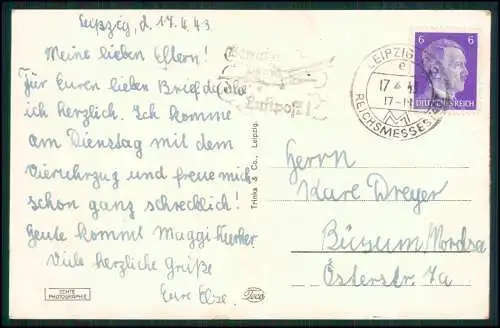 Leipzig, d. 17.4.43
Meine lieben Eltern!
Für Euren lieben Brief danke
ich herzlich. Ich komme
am Dienstag mit dem
Vieruhrzug und freue mich
schon ganz schrecklich!
Heute kommt Maggi
Viele herzliche Grüße
Eure
ECHTE
PHOTOGRAPHIE
Trinks & Co., Leipzig.
Luftpost!
LEIPZIG
e
17.4.43
17-
REICHSMESSESTADT
6 6
DEUTSCHES REICH
Herrn
Karl Dreyer
Büsum Nordsee
Österstr. 7a